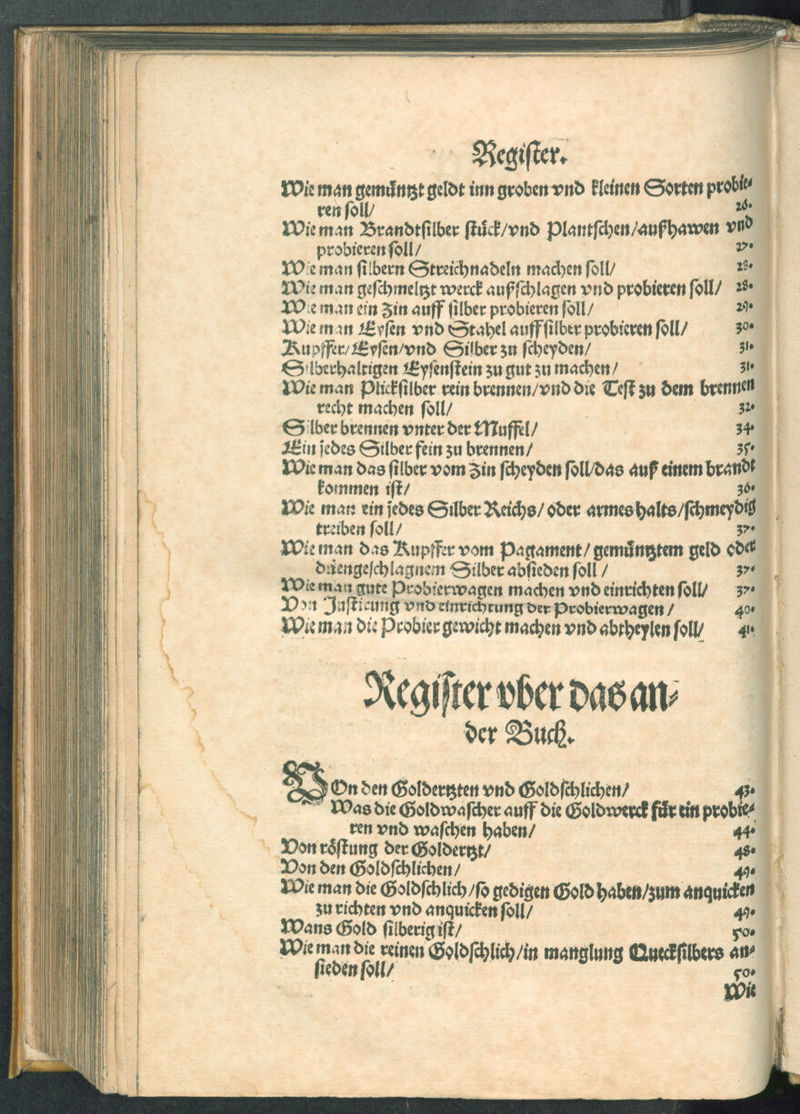 Register.
Wie man gemüntzt geldt inn groben vnd kleinen Sorten probie-
ren soll/ 26.
Wie man Brandtsilber stück/vnd Plantschen/aufhawen vnd
probieren soll/ 27.
Wie man silbern Streichnadeln machen soll/ 28.
Wie man geschmeltzt werck aufschlagen vnd probieren soll/ 28.
Wie man ein Zin auff silber probieren soll/ 29.
Wie man Eysen vnd Stahel auff silber probieren soll/ 30.
Kupffer/Eysen/vnd Silber zu scheyden/ 31.
Silberhaltigen Eysenstein zu gut zu machen/ 31.
Wie man Plicksilber rein brennen/vnd die Test zu dem brennen
recht machen soll/ 32.
Silber brennen vnter der Muffel/ 34.
Ein jedes Silber fein zu brennen/ 35.
Wie man das silber vom Zin scheyden soll/das auf einem brandt
kommen ist/ 36.
Wie man ein jedes Silber Reichs/ oder armes halts/schmeydig
treiben soll/ 37.
Wie man das Kupffer vom Pagament/ gemüntztem geld oder
düengeschlagnem Silber absieden soll / 37.
Wie man gute Probierwagen machen vnd einrichten soll/ 37.
Von Justirung vnd einrichtung der Probierwagen / 40.
Wie man die Probier gewicht machen vnd abtheylen soll/ 41.
Register vber das an-
der Buch.
VOn den Goldertzten vnd Goldschlichen/ 43.
Was die Goldwascher auff die Goldwerck für ein probie-
ren vnd waschen haben/ 44.
Von röstung der Goldertzt/ 48.
Von den Goldschlichen/ 49.
Wie man die Goldschlich/so gedigen Gold haben/zum anquicken
zu richten vnd anquicken soll/ 49.
Wans Gold silberig ist/ 50.
Wie man die reinen Goldschlich/in manglung Quecksilbers an-
sieden soll/ 50.
Wie